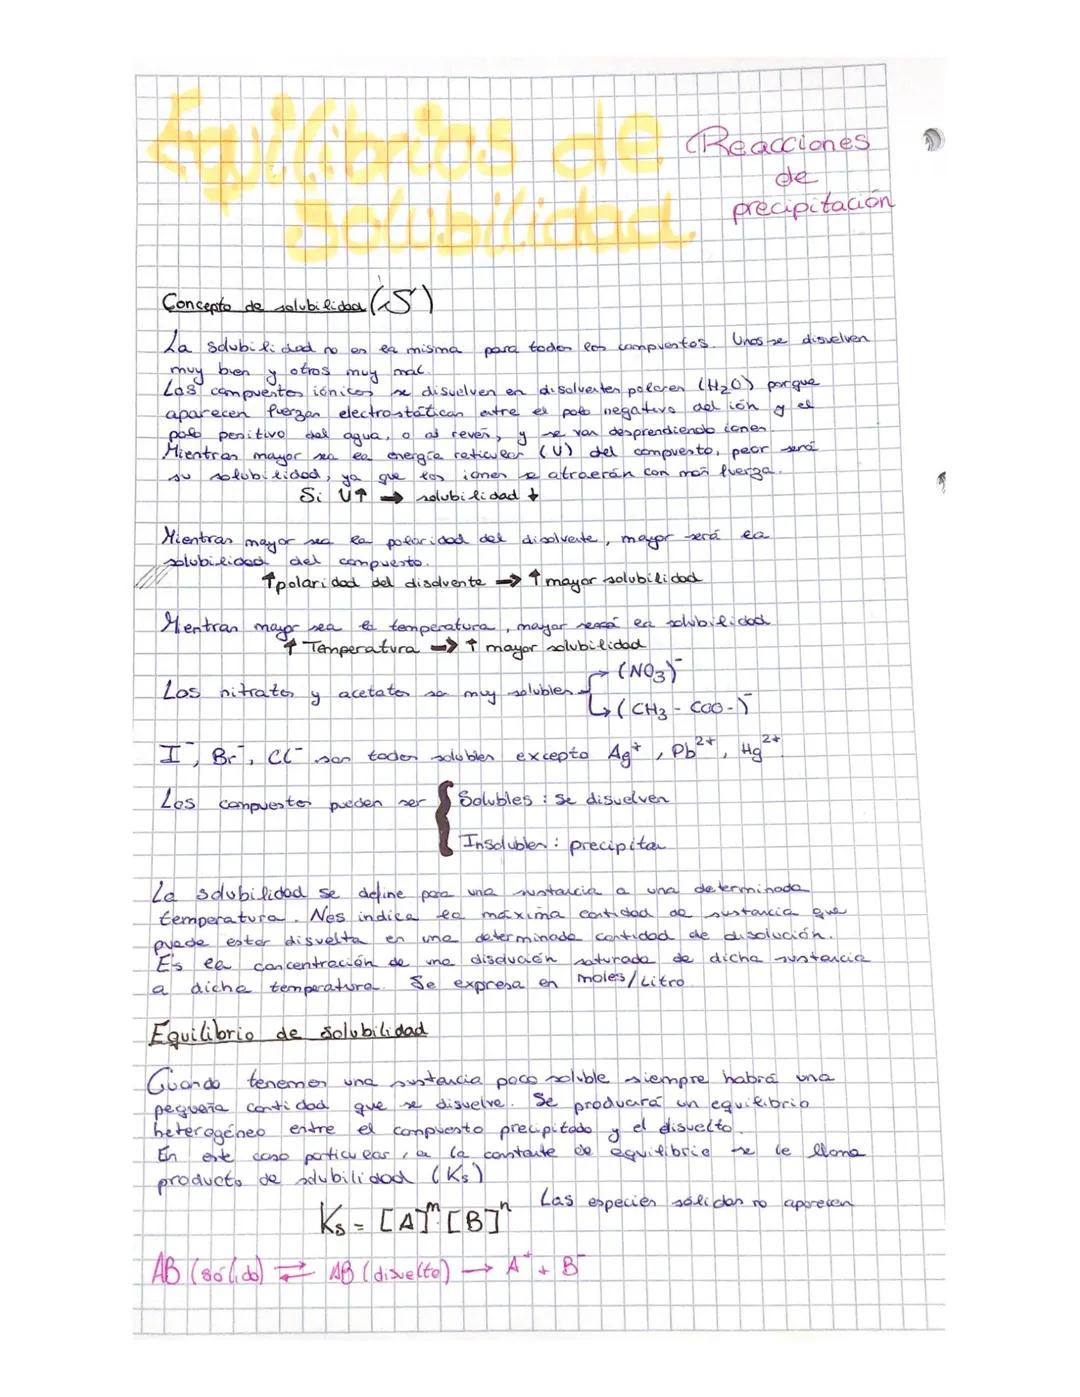 Equilibrios de
Solubilidad
Reacciones
de
precipitación
Concepto de solubilidad (S)
La solubilidad no es la misma para todos los compuestos. Unos se disuelven
muy bien y otros muy mal.
Los compuestos iónicos se disuelven en disolventes polares (H2O) porque
aparecen fuerzas electrostáticas entre el polo negativo del ión y el
polo positivo del agua, o al revés, y se van desprendiendo iones.
Mientras mayor sea la energía reticular (U) del compuesto, peor será
su solubilidad, ya que los iones se atraerán con más fuerza.
Si U↑ → solubilidad ↓
Mientras mayor sea la polaridad del disolvente, mayor será la
solubilidad del compuesto.
↑polaridad del disolvente → ↑ mayor solubilidad
Mientras mayor sea la temperatura, mayor será la solubilidad
↑ Temperatura → ↑ mayor solubilidad
Los nitratos y acetatos son muy solubles → (NO3)⁻
↳ (CH3 - COO-)⁻
I⁻, Br⁻, Cl⁻ son todos solubles excepto Ag⁺, Pb²⁺, Hg²⁺
Los compuestos pueden ser { Solubles : se disuelven
Insolubles : precipitan
La solubilidad se define para una sustancia a una determinada
temperatura. Nos indica la máxima cantidad de sustancia que
puede estar disuelta en una determinada cantidad de disolución.
Es la concentración de una disolución saturada de dicha sustancia
a dicha temperatura. Se expresa en moles/Litro
Equilibrio de solubilidad
Cuando tenemos una sustancia poco soluble siempre habrá una
pequeña cantidad que se disuelve. Se producirá un equilibrio
heterogéneo entre el compuesto precipitado y el disuelto.
En este caso particular, a la constante de equilibrio se le llama
producto de solubilidad (Ks)
Ks = [A]ᵐ·[B]ⁿ Las especies sólidas no aparecen
AB (sólido) ⇄ AB (disuelto) → A⁺ + B⁻